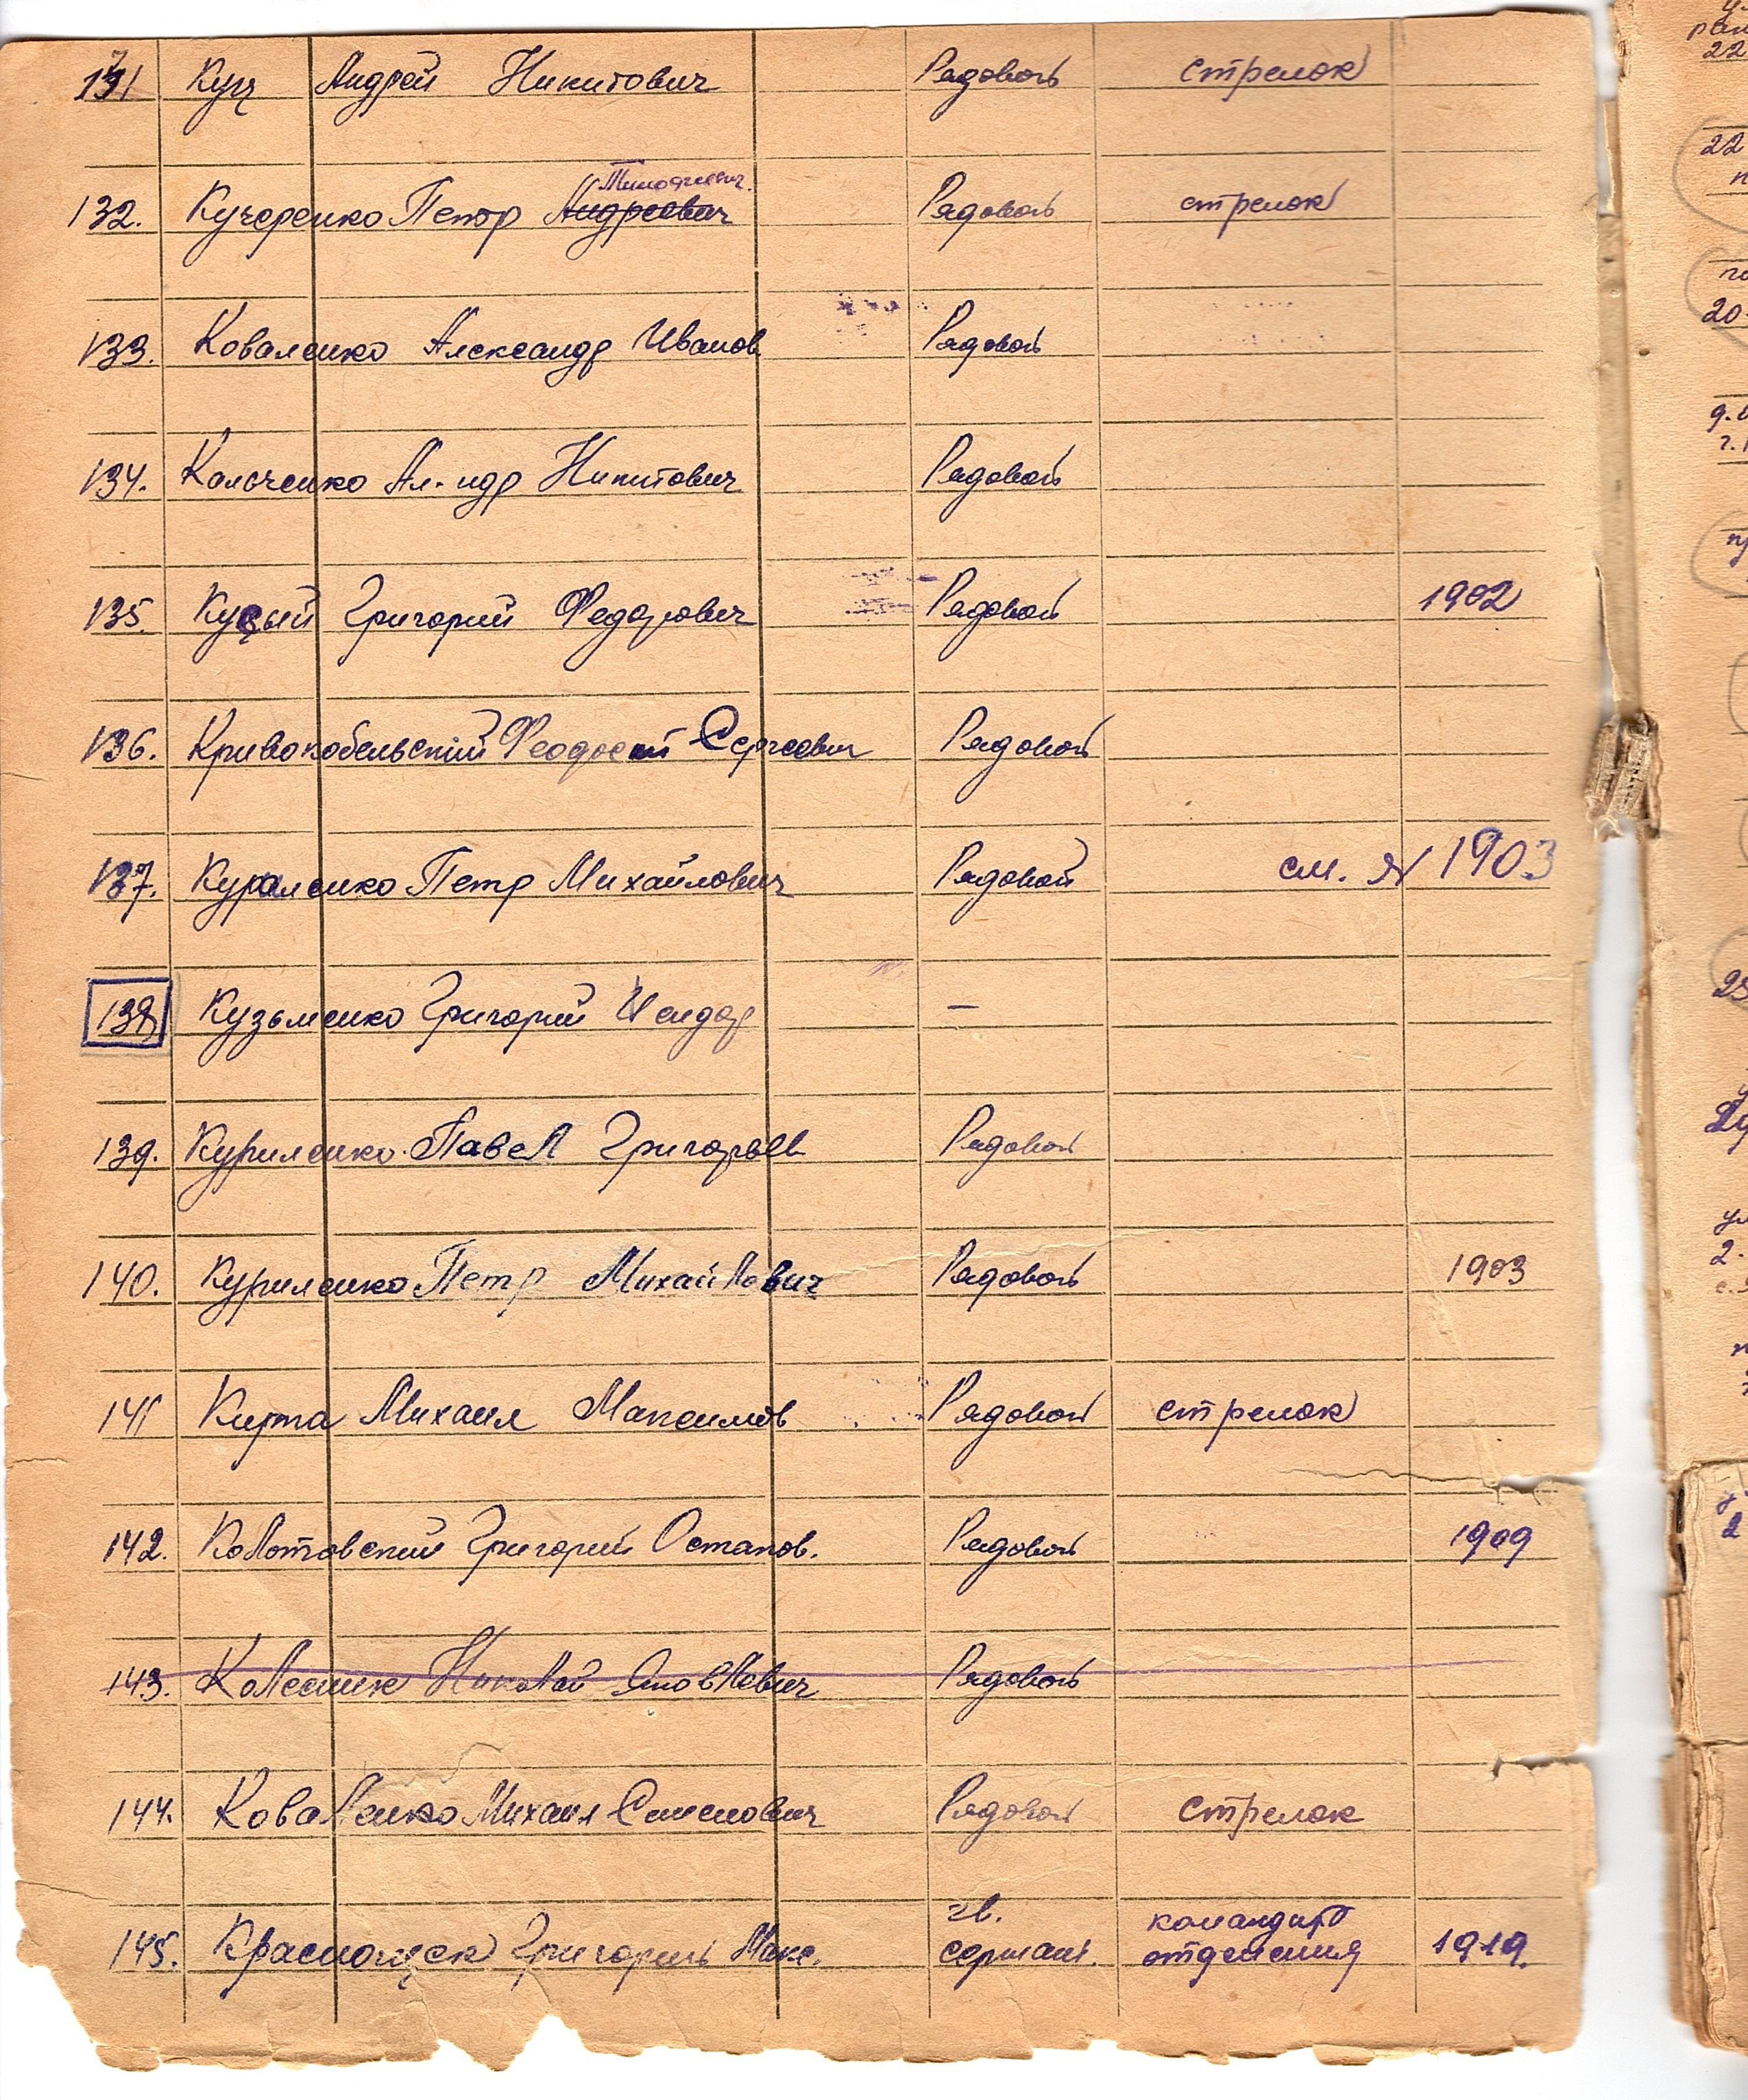 131 Куц Андрей Никитович Рядовой стрелок
Тимофеевич
132. Кучеренко Петр Андреевич Рядовой стрелок
133. Коваленко Александр Иванов Рядовой
134. Колоченко Ал-ндр Никитович Рядовой
135. Куцый Григорий Федорович Рядовой 1902
136. Кривокобельский Феодосий Сергеевич Рядовой
137. Кураленко Петр Михайлович Рядовой см. № 1903
138 Кузьменко Григорий Исидор —
139. Куриленко Павел Григорьев Рядовой
140. Куриленко Петр Михайлович Рядовой 1903
141 Кирта Михаил Максимов Рядовой стрелок
142. Колотовский Григорий Остапов. Рядовой 1909
143. Колесник Николай Яковлевич Рядовой
144. Коваленко Михаил Семенович Рядовой стрелок
гв. командир
145. Григорий Макс. сержант. отделения 1919.